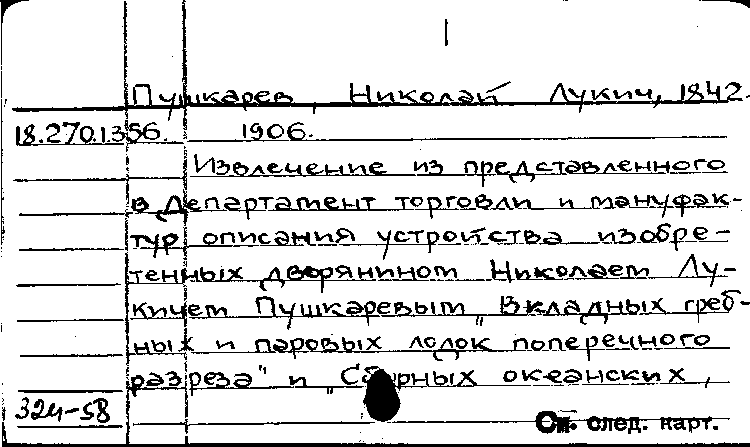 Пушкарев, Николай Лукич, 1842-
18.270.1.356. 1906.
Извлечение из представленного
в Департамент торговли и мануфак-
тур описания устройства изобре-
тенных дворянином Николаем Лу-
кичем Пушкаревым „Вкладных греб-
ных и паровых лодок поперечного
разреза" и „Сборных океанских,
324-58
См. след. карт.